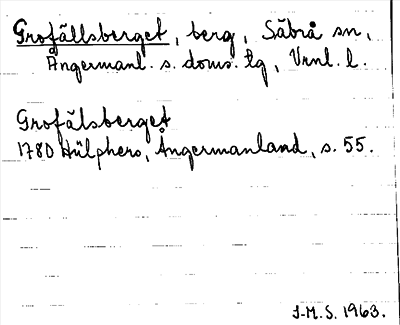 Grofällsberget, berg, Säbrå sn,
Ångermanl. s. doms. tg, Vrnl. l.
Grofälsberget
1780 Hülphers, Ångermanland, s. 55.
J-M. S. 1963.